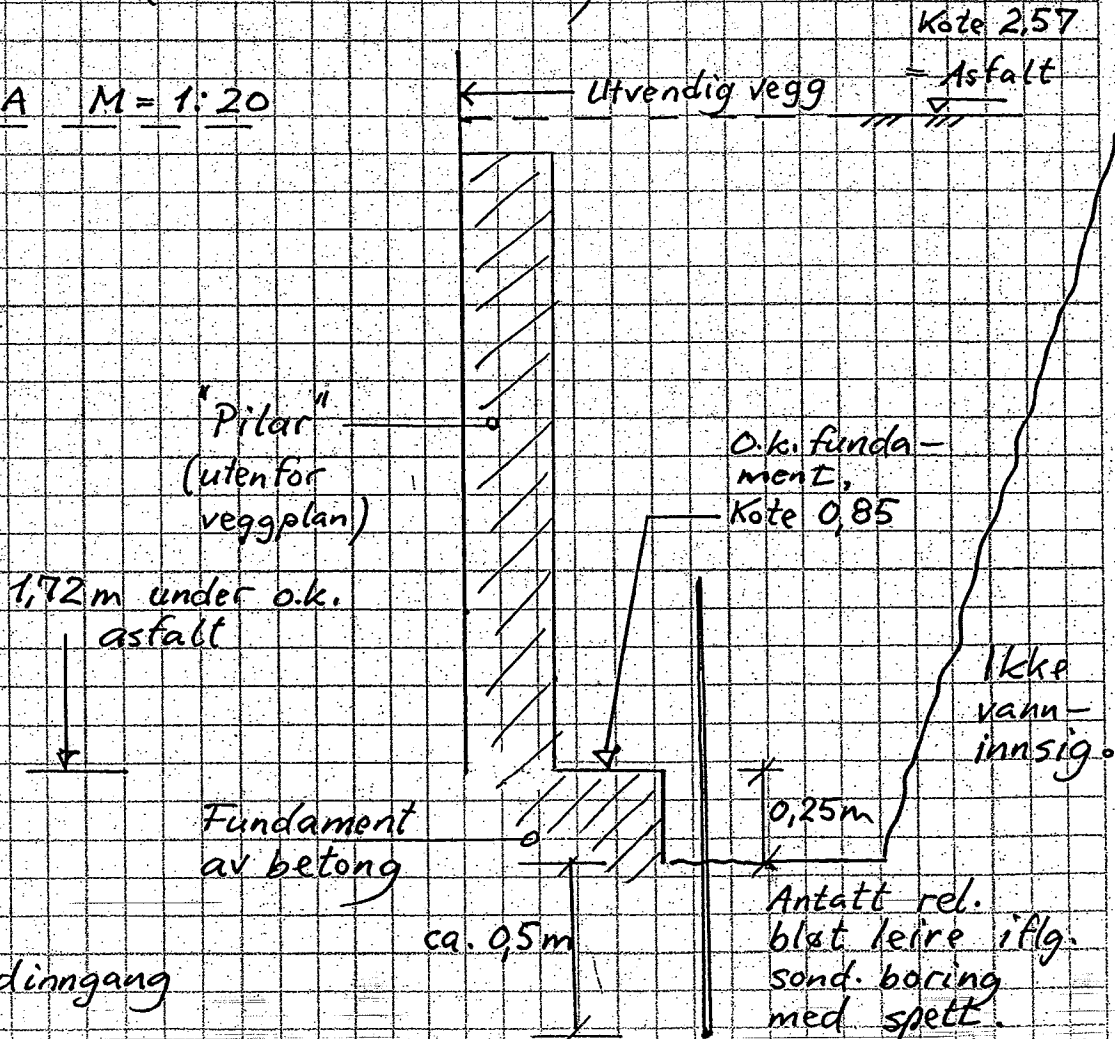 Kote 2,57
= Asfalt
A M = 1:20
Utvendig vegg
"Pilar"
(utenfor
veggplan)
O.k. funda-
ment,
Kote 0,85
1,72m under o.k.
asfalt
Ikke
vann-
innsig.
0,25m
Fundament
av betong
Antatt rel.
bløt leire iflg.
sond. boring
med spett.
ca. 0,5m
dinngang